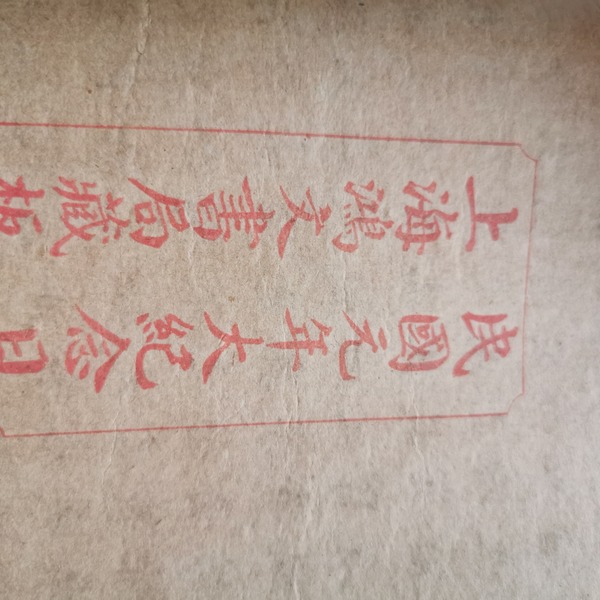 民國元年大紀念日
上海鴻文書局藏